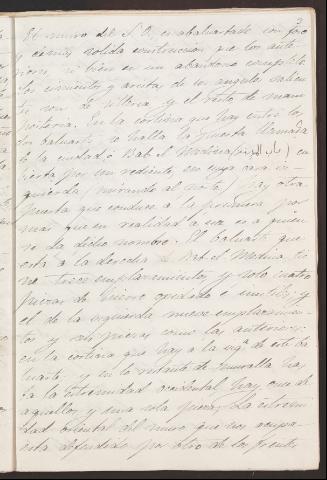 3
El muro del S. O, es abaluartado con foso
y demas solida construccion que los ante
riores, si bien en un abandono completo
los cimientos y arista de un angulo salien
te son de silleria y el resto de mam
posteria. En la cortina que hay entre los
dos baluartes se halla la puerta llamada
de la ciudad ó Bab el Medina (باب المدينة) cu
bierta por un rediente, en cuya cara iz-
quierda (mirando al norte) hay otra
puerta que conduce a la primera por
mas que en realidad a esa es a quien
se la dicho nombre. El baluarte que
está a la derecha de Bab el Medina tie
ne trece emplazamientos y solo cuatro
piezas de hierro oxidado é inutiles y
el de la izquierda nueve emplazamien
tos y seis piezas como las anteriores
en la cortina que hay a la izqª de este ba
luarte, y en lo restante de muralla has
ta la extremidad occidental hay once de
aquellos y una sola pieza. La extremi
dad oriental del muro que nos ocupa
está defendida por otro de los frente